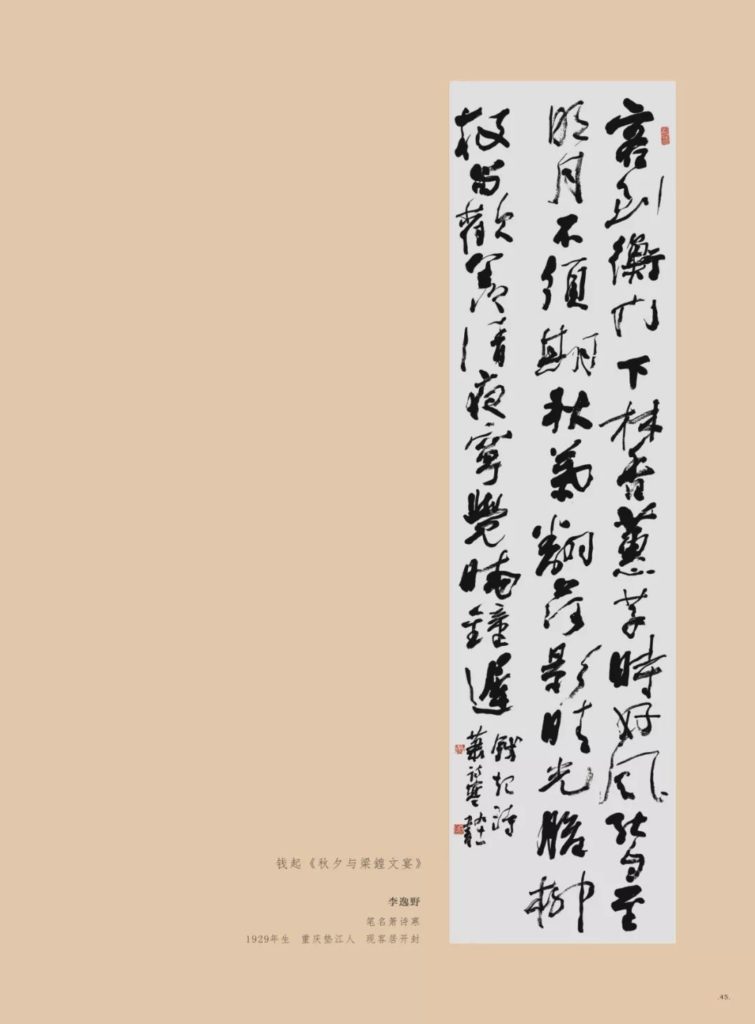 客到衡门下林香蕙草時好风能自至
明月不須期秋氣翻荷影晴光脆柳
枝留歡美清夜寧覺曉鐘遲
錢起詩
蕭詩寒 九十一書
钱起《秋夕与梁锽文宴》
李逸野
笔名萧诗寒
1929年生 重庆垫江人 现客居开封
.45.